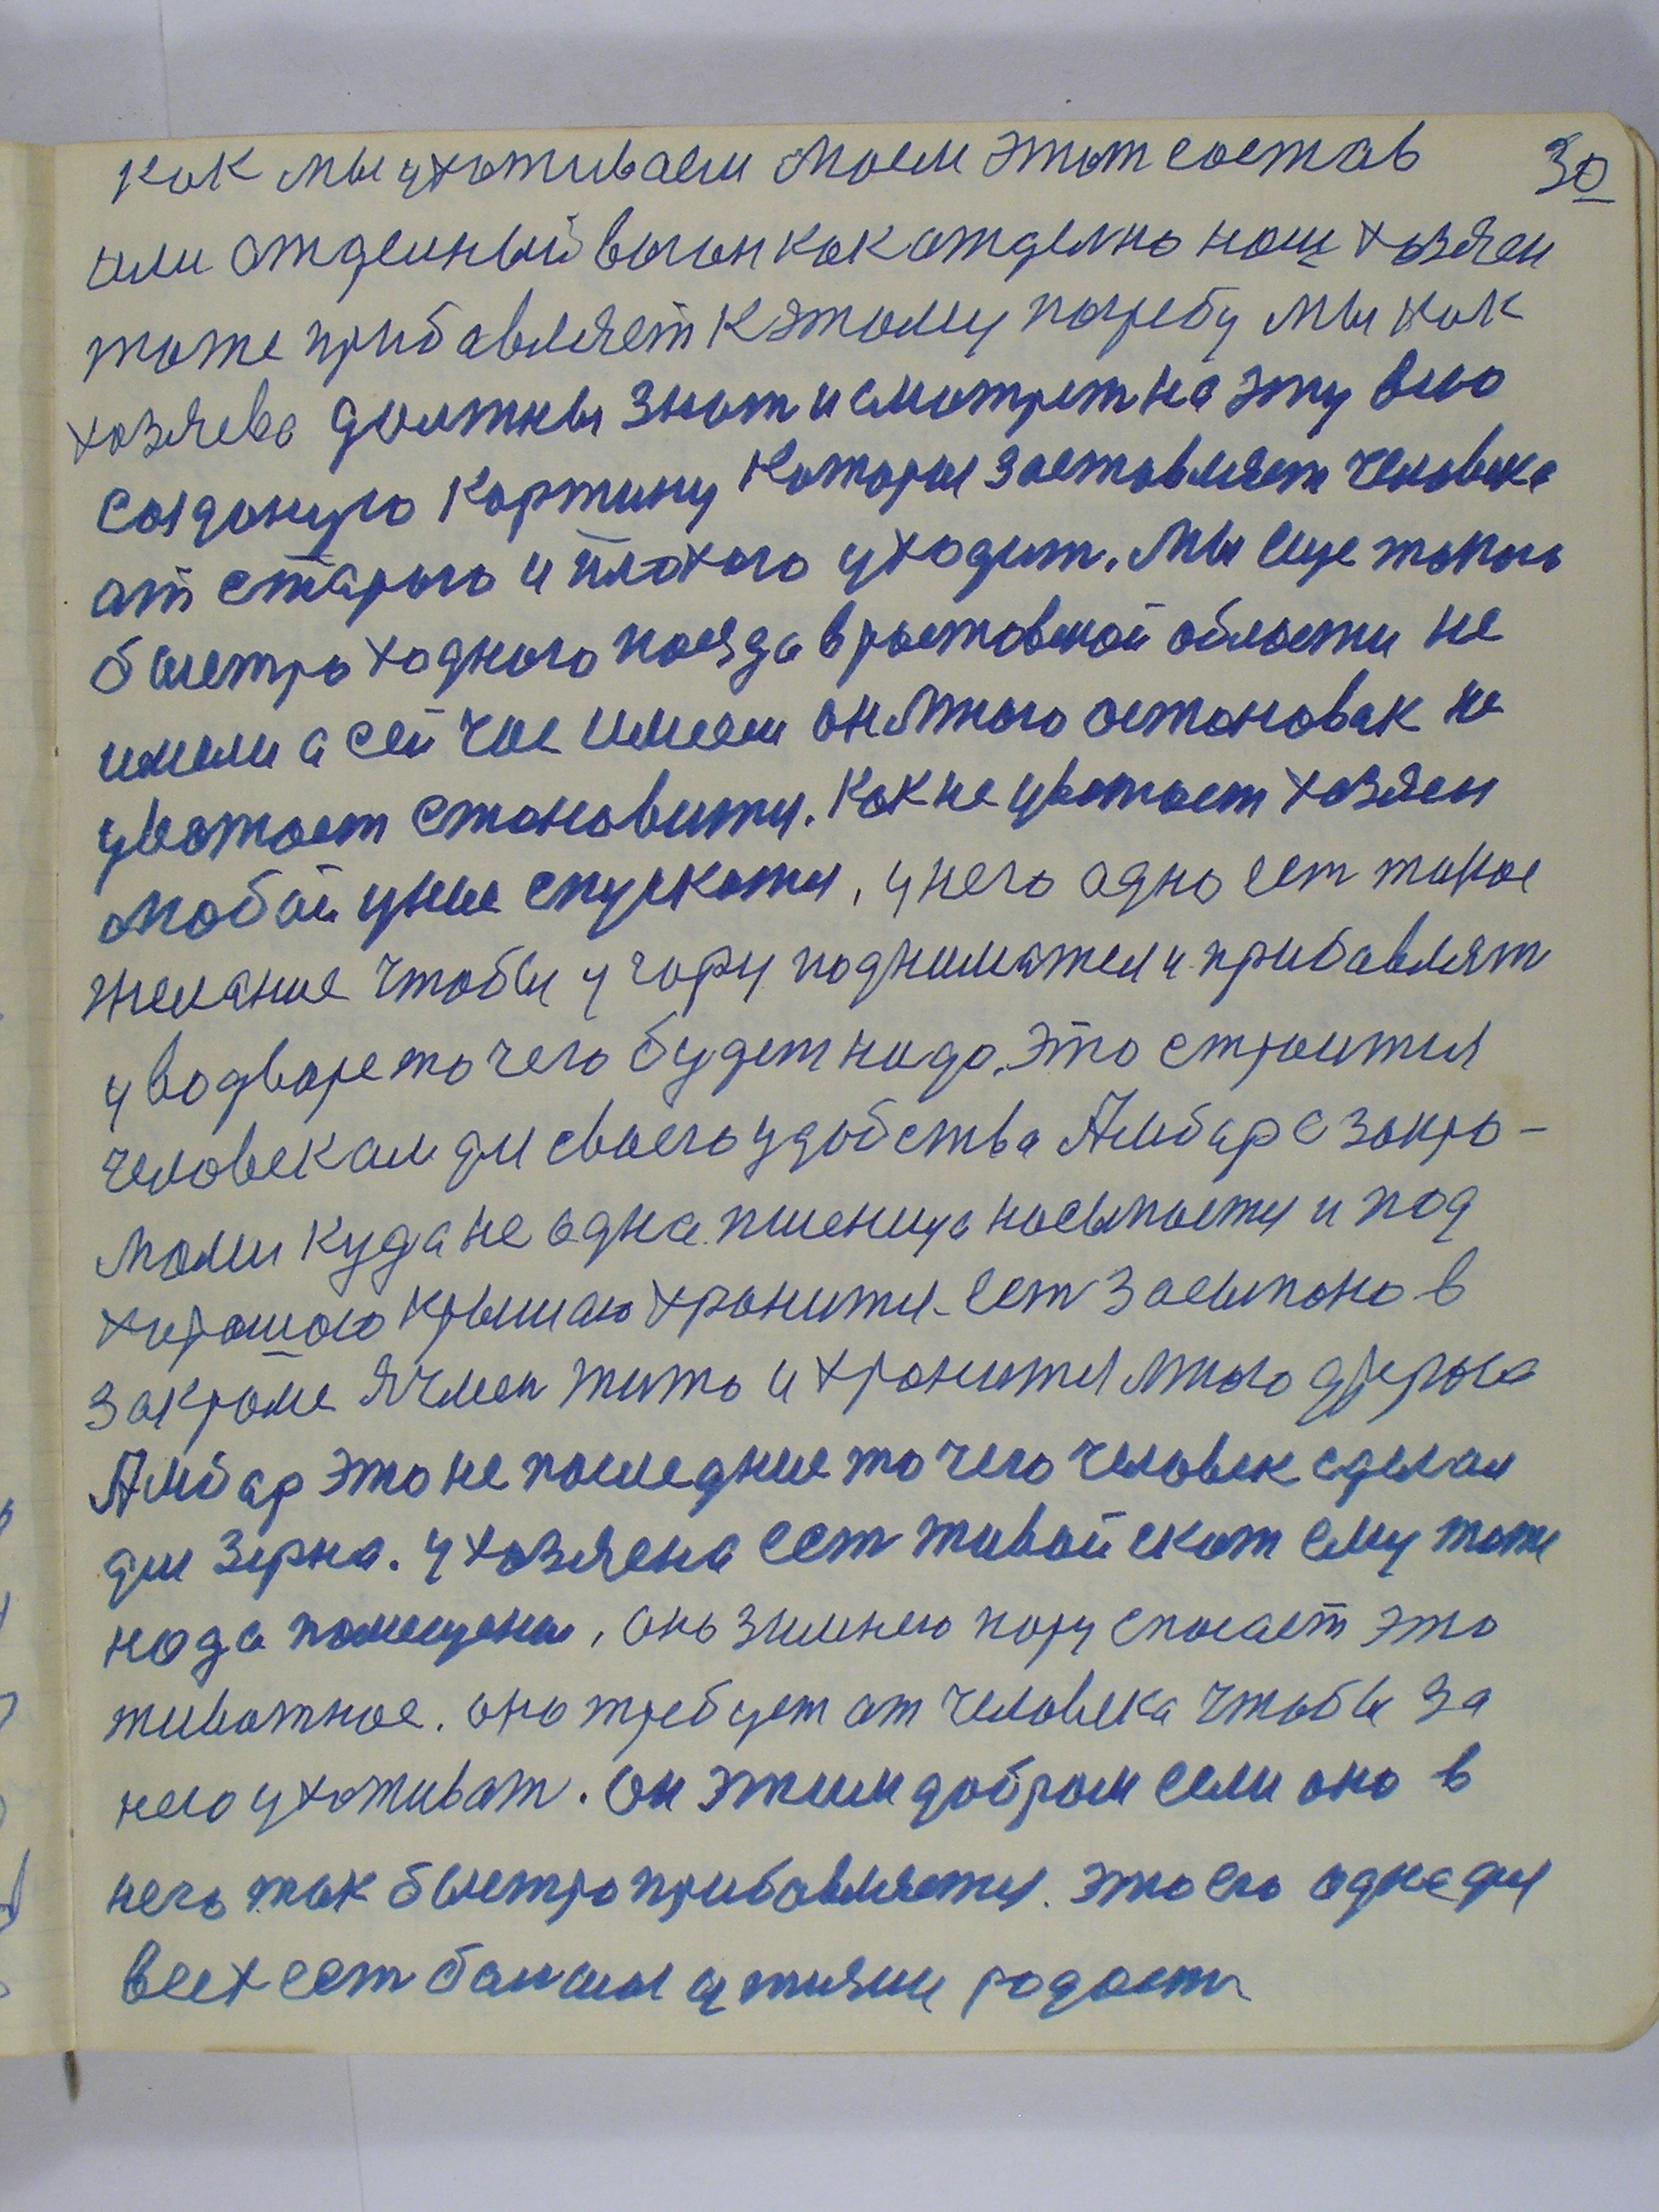 как мы ухаживаем моем этот состав 30
или отделный вагон как отделно наш хозяен
тоже прибавляет к этому погребу мы как
хозяева должны знат и смотрет на эту вио
созданую картину каторая заставляет человека
от старого и плохого уходит. Мы еще такого
быстро ходного поезда в ростовской области не
имели а сей час имеем он много астановак не
уважает становится. Как не уважает хозяен
любой униз спускатся, у него одно ест такое
желание чтобы у гору подниматся и прибавлят
у водворе то чего будет надо. Это строится
человекам для своего удобства Амбар с закро-
мами куда не одна пшеница насыпается и под
хорошою крышаю хранится. Ест засыпано в
закроме ячмен жито и хранится много другова
Амбар это не последние то чего человек сделал
для зерна. У хозяена ест живой скот ему тоже
нада помещение, оно зимнею пору спасает это
животное. оно требует от человека чтобы за
него ухаживат. Он этим добром если оно в
него так быстро прибавляется. это его одна для
всех ест балшая у жизни радасть